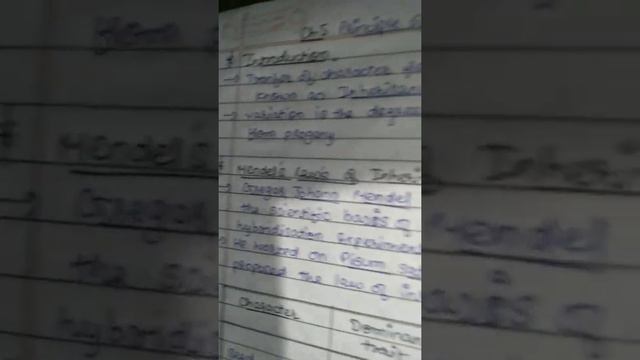 Ch-5 Principle
* Introduction
→ Transfer of character
known as Inheritan
→ Variation is the degree
from progeny
* Mendel's laws of Inher
→ Gregor Johann Mendel
the scientific basis of
hybridization Experiment
→ He worked on Pisum Sa
proposed the law of in
Character Dominan
trait
seed